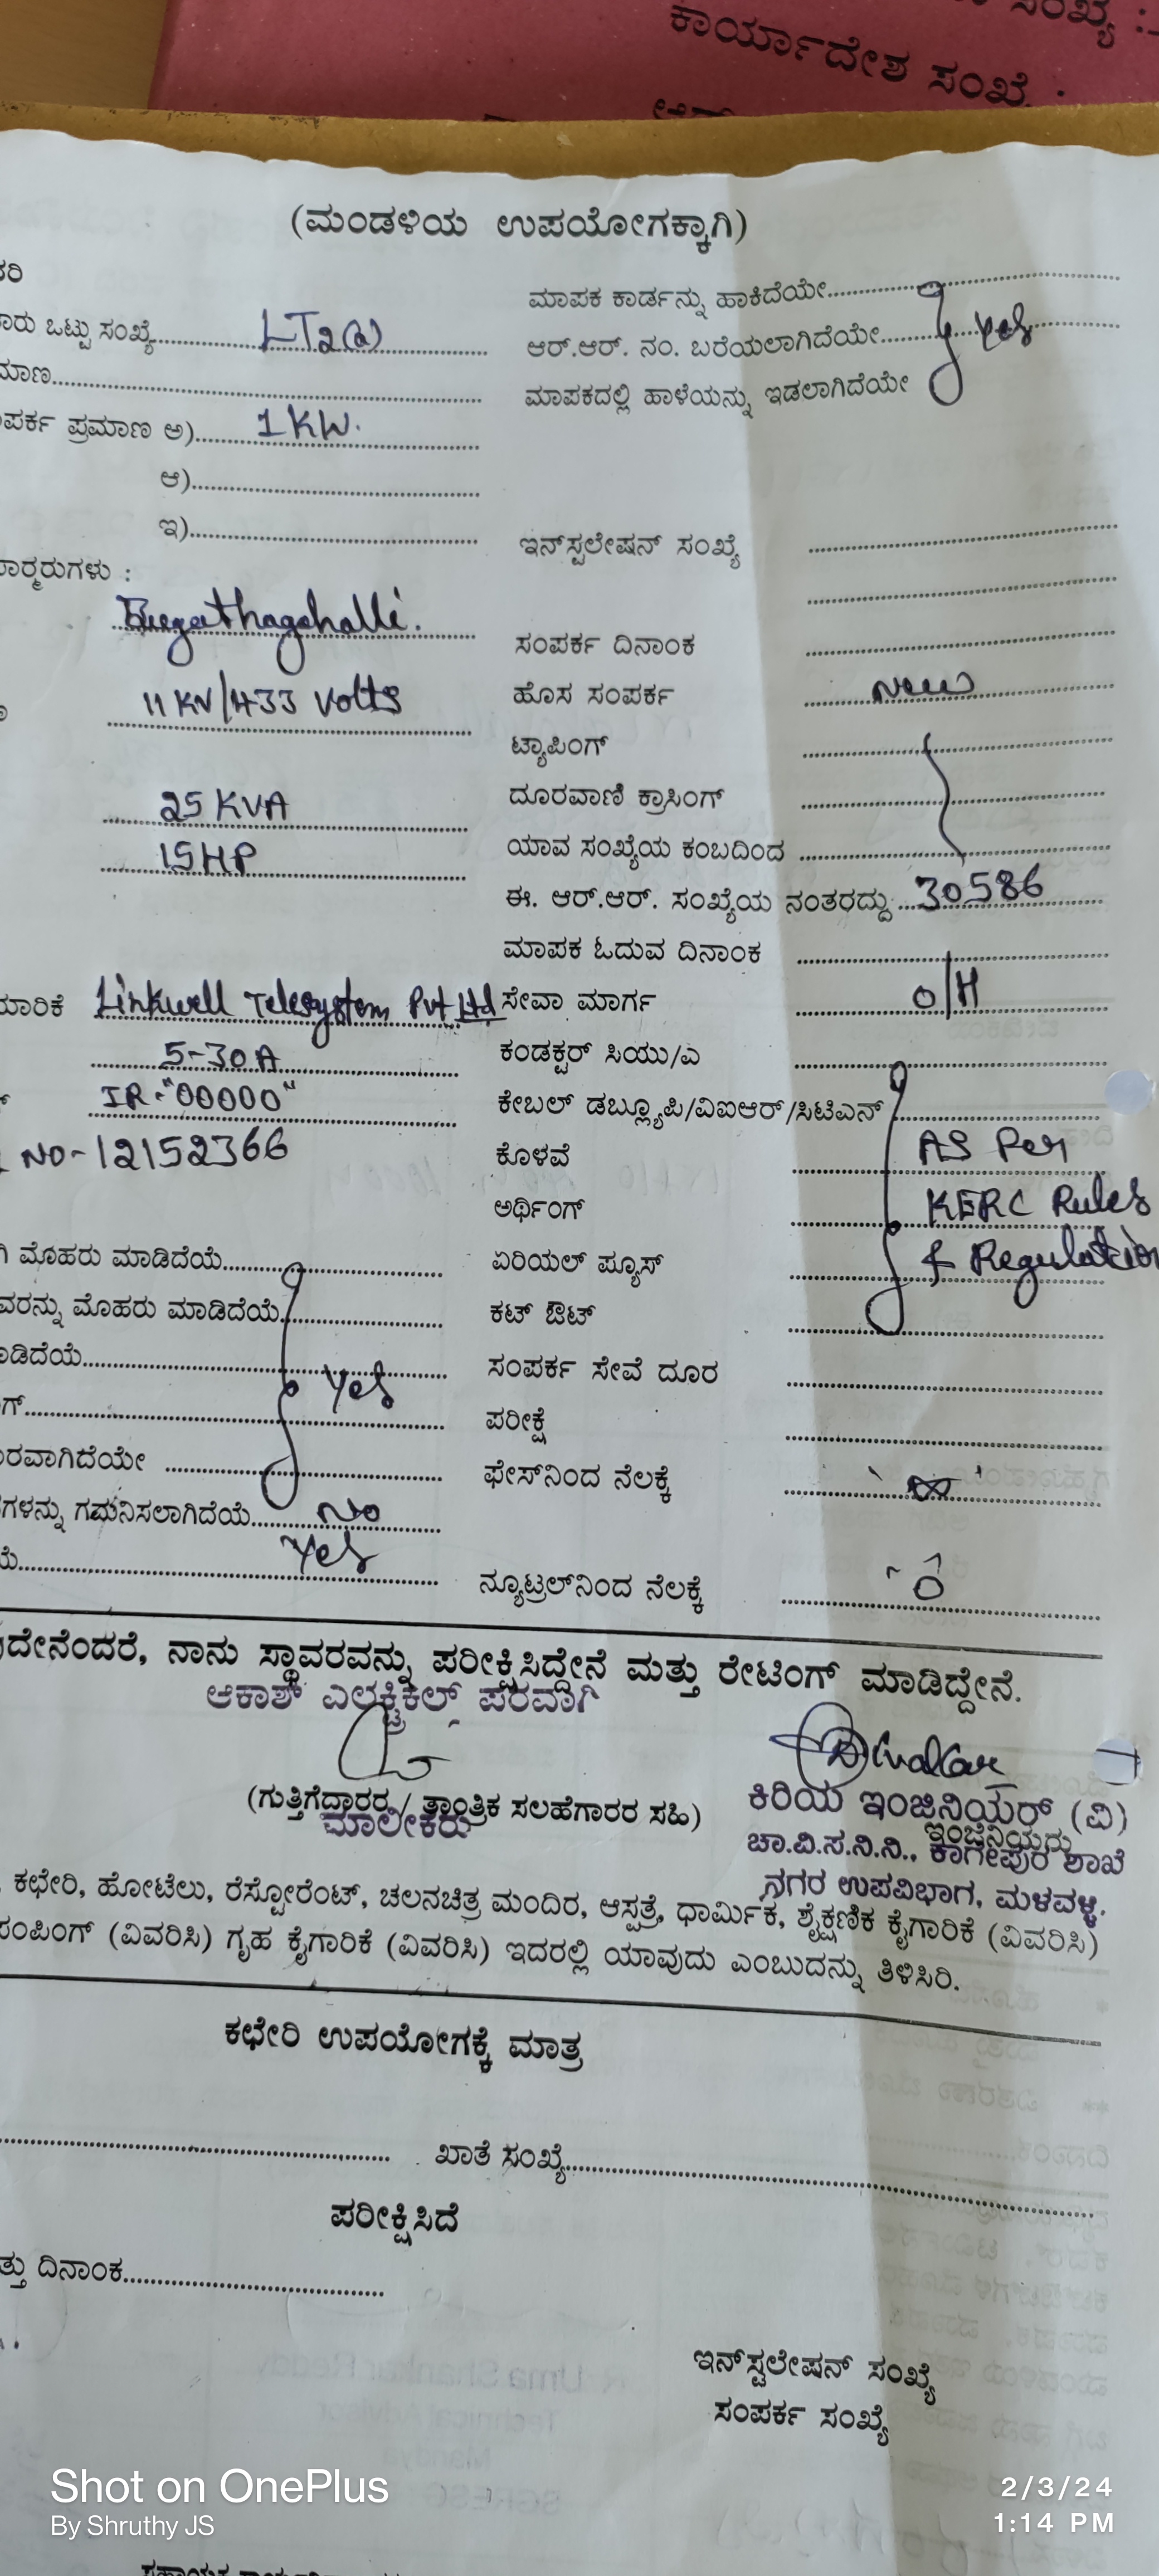 ಸಂಖ್ಯೆ :
ಕಾರ್ಯಾದೇಶ ಸಂಖೆ :
(ಮಂಡಳಿಯ ಉಪಯೋಗಕ್ಕಾಗಿ)
ಮಾಪಕ ಕಾರ್ಡನ್ನು ಹಾಕಿದೆಯೇ
ಒಟ್ಟು ಸಂಖ್ಯೆ LT2(a) ಆರ್.ಆರ್. ನಂ. ಬರೆಯಲಾಗಿದೆಯೇ Yes
ಮಾಪಕದಲ್ಲಿ ಹಾಳೆಯನ್ನು ಇಡಲಾಗಿದೆಯೇ
ಪ್ರಮಾಣ ಅ) 1KW.
ಆ)
ಇ)
ಇನ್‌ಸ್ಟಲೇಷನ್ ಸಂಖ್ಯೆ
ಸಂಪರ್ಕ ದಿನಾಂಕ
11 KV/433 Volts ಹೊಸ ಸಂಪರ್ಕ New
ಟ್ಯಾಪಿಂಗ್
25 KVA ದೂರವಾಣಿ ಕ್ರಾಸಿಂಗ್
15HP ಯಾವ ಸಂಖ್ಯೆಯ ಕಂಬದಿಂದ
ಈ. ಆರ್.ಆರ್. ಸಂಖ್ಯೆಯ ನಂತರದ್ದು 30586
ಮಾಪಕ ಓದುವ ದಿನಾಂಕ
Linkwell Telesystem Pvt Ltd ಸೇವಾ ಮಾರ್ಗ O/H
5-30A ಕಂಡಕ್ಟರ್ ಸಿಯು/ಎ
IR-"00000" ಕೇಬಲ್ ಡಬ್ಲ್ಯೂಪಿ/ವಿಐಆರ್/ಸಿಟಿಎನ್
NO-12152366 ಕೊಳವೆ AS Per
ಅರ್ಥಿಂಗ್ KERC Rules
ಮೊಹರು ಮಾಡಿದೆಯೆ ಏರಿಯಲ್ ಫ್ಯೂಸ್ & Regulation
ಮೊಹರು ಮಾಡಿದೆಯೆ ಕಟ್ ಔಟ್
Yes ಸಂಪರ್ಕ ಸೇವೆ ದೂರ
ಪರೀಕ್ಷೆ
ಫೇಸ್‌ನಿಂದ ನೆಲಕ್ಕೆ
ಗಮನಿಸಲಾಗಿದೆಯೆ No
Yes ನ್ಯೂಟ್ರಲ್‌ನಿಂದ ನೆಲಕ್ಕೆ
ನಾನು ಸ್ಥಾವರವನ್ನು ಪರೀಕ್ಷಿಸಿದ್ದೇನೆ ಮತ್ತು ರೇಟಿಂಗ್ ಮಾಡಿದ್ದೇನೆ.
ಆಕಾಶ್ ಎಲಕ್ಟ್ರಿಕಲ್ ಪರವಾಗಿ
(ಗುತ್ತಿಗೆದಾರರ / ತಾಂತ್ರಿಕ ಸಲಹೆಗಾರರ ಸಹಿ) ಕಿರಿಯ ಇಂಜಿನಿಯರ್ (ವಿ)
ಮಾಲೀಕರು ಇಂಜಿನಿಯರು
ಚಾ.ವಿ.ಸ.ನಿ.ನಿ., ಕಾಗೇಪುರ ಶಾಖೆ
ನಗರ ಉಪವಿಭಾಗ, ಮಳವಳ್ಳಿ.
ಕಛೇರಿ, ಹೋಟೆಲು, ರೆಸ್ಟೋರೆಂಟ್, ಚಲನಚಿತ್ರ ಮಂದಿರ, ಆಸ್ಪತ್ರೆ, ಧಾರ್ಮಿಕ, ಶೈಕ್ಷಣಿಕ ಕೈಗಾರಿಕೆ (ವಿವರಿಸಿ)
(ವಿವರಿಸಿ) ಗೃಹ ಕೈಗಾರಿಕೆ (ವಿವರಿಸಿ) ಇದರಲ್ಲಿ ಯಾವುದು ಎಂಬುದನ್ನು ತಿಳಿಸಿರಿ.
ಕಛೇರಿ ಉಪಯೋಗಕ್ಕೆ ಮಾತ್ರ
ಖಾತೆ ಸಂಖ್ಯೆ
ಪರೀಕ್ಷಿಸಿದೆ
ದಿನಾಂಕ
ಇನ್‌ಸ್ಟಲೇಷನ್ ಸಂಖ್ಯೆ
ಸಂಪರ್ಕ ಸಂಖ್ಯೆ
Shot on OnePlus 2/3/24
By Shruthy JS 1:14 PM